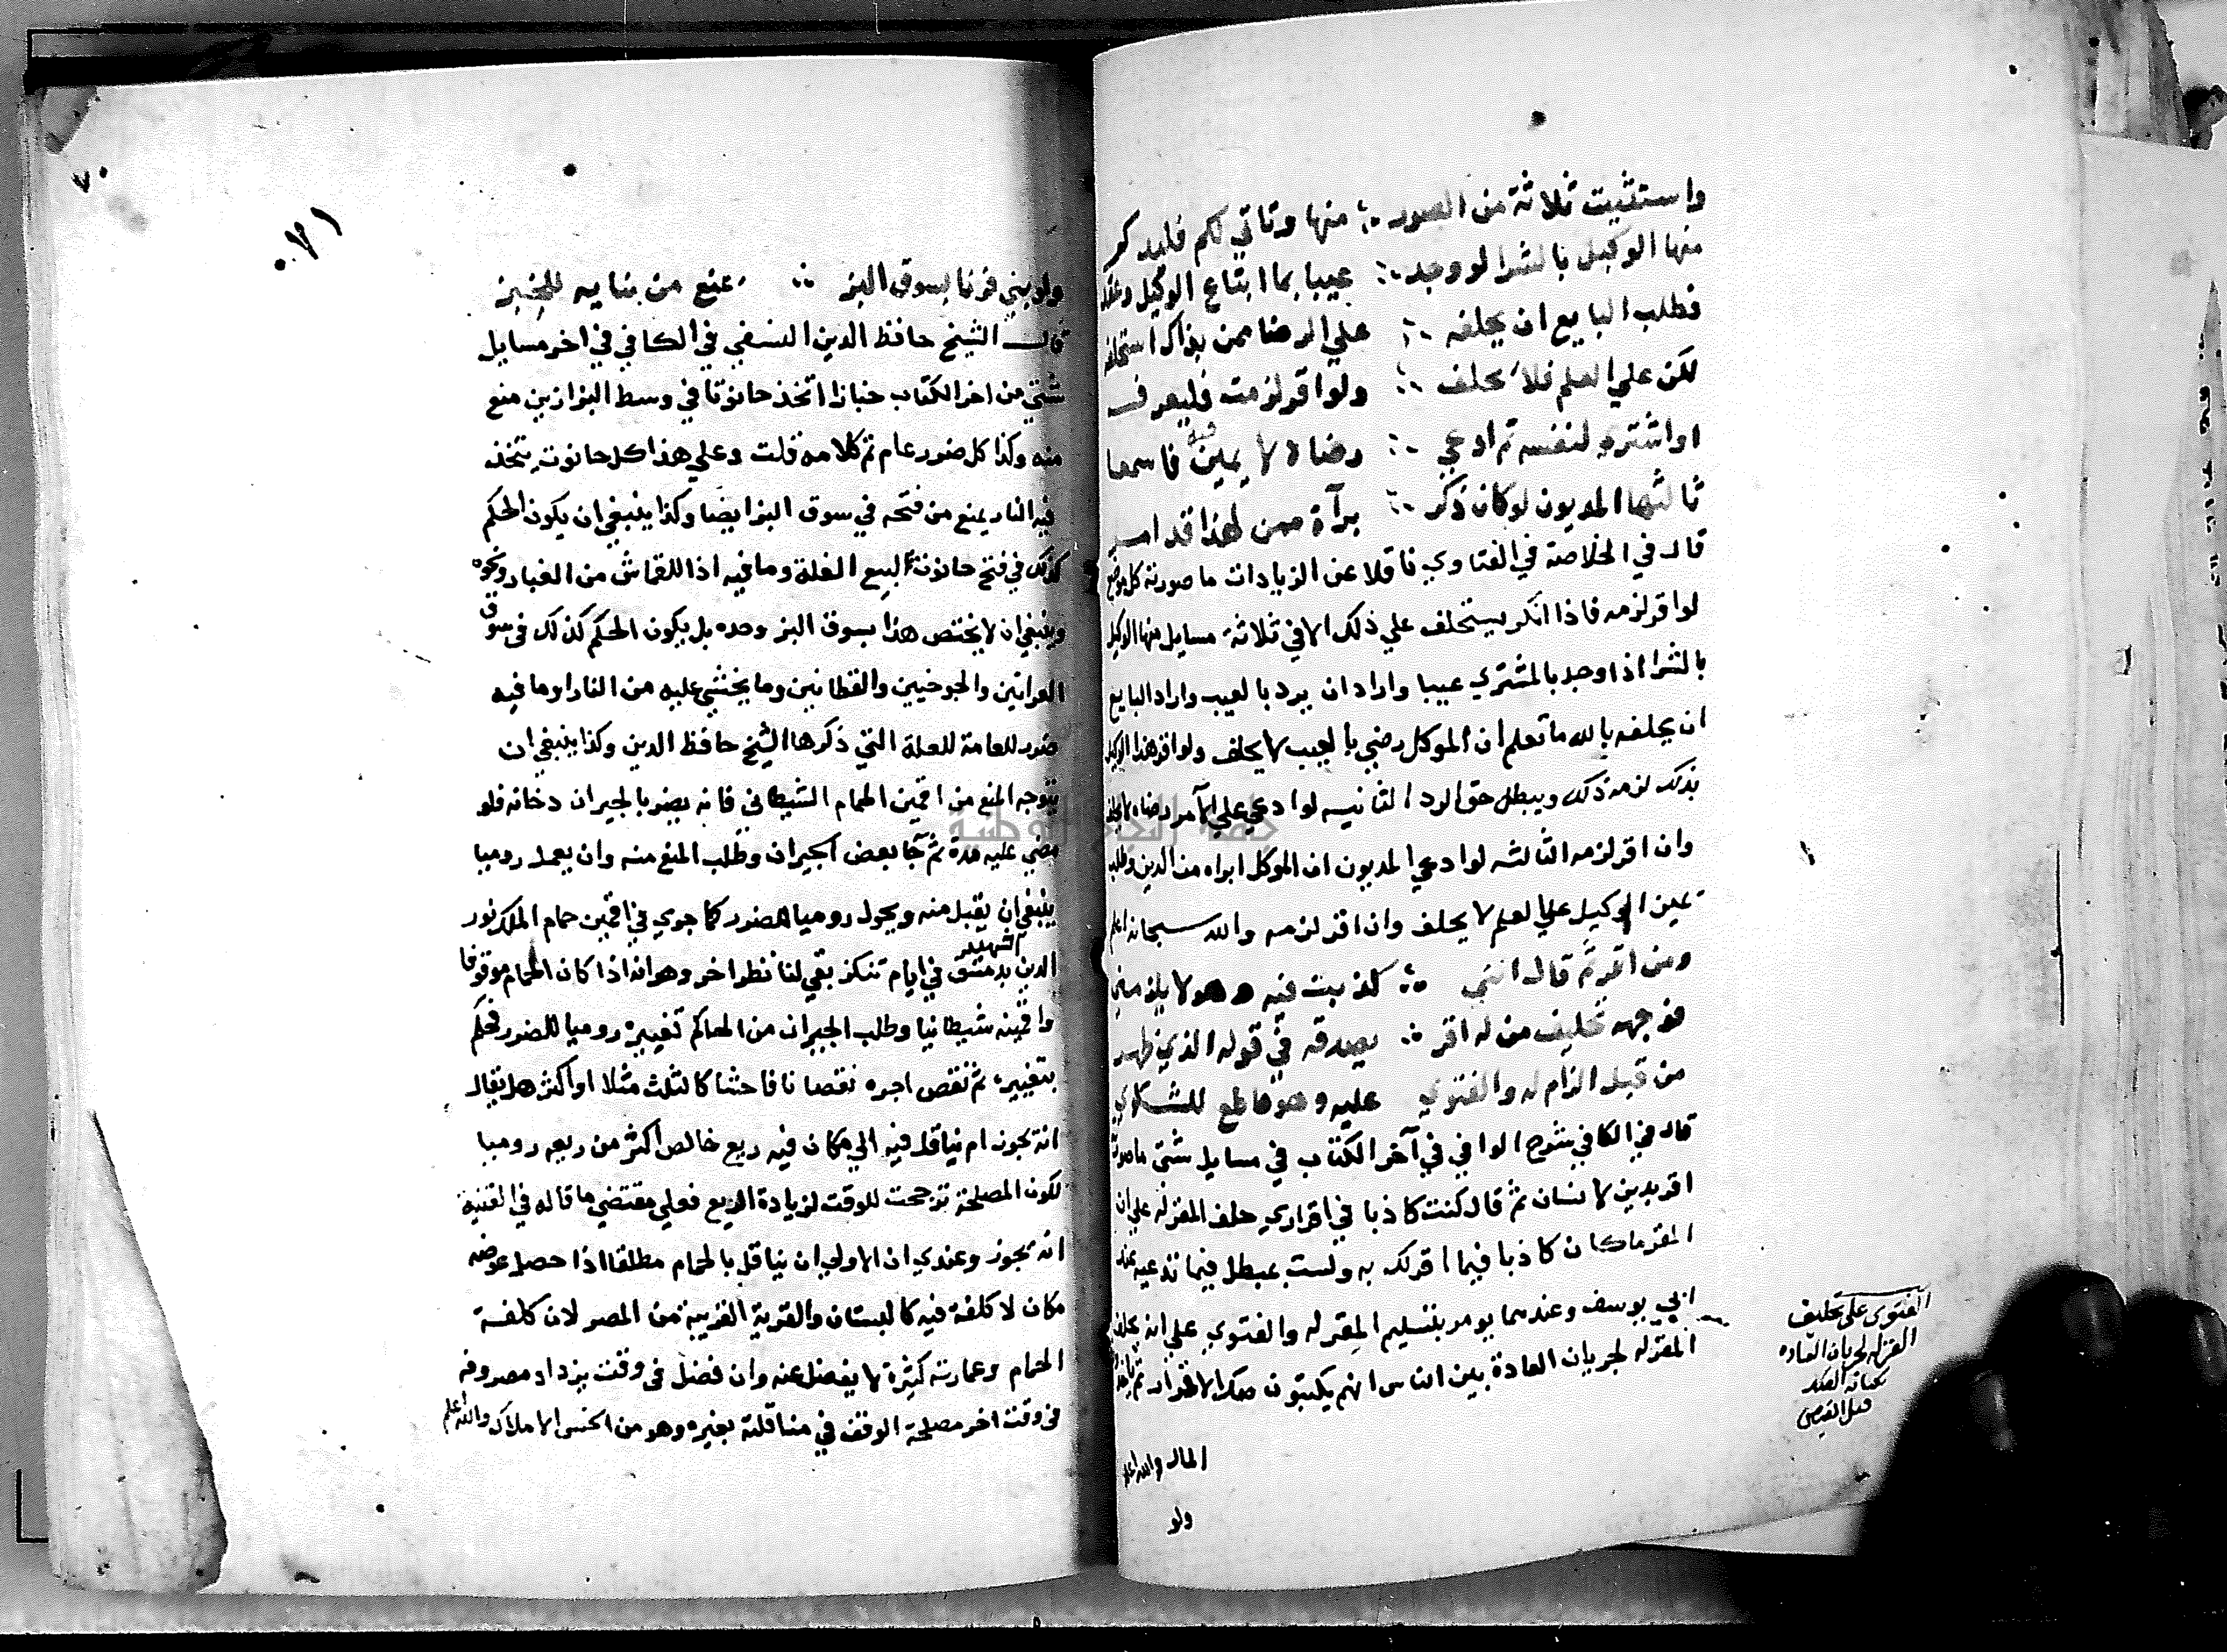 واستثنيت ثلاثة من الصور ∴ منها وتاتي لكم فليذكر
منها الوكيل بالشرا لو وجد ∴ عيبا بما ابتاع الوكيل وعقد
فطلب البايع ان يحلفه ∴ علي الرضا ممن بذاك استحلفه
لكن علي العلم فلا يحلف ∴ ولو اقر لزمت فليعرف
او اشتري لنفسه ثم ادعي ∴ رضاه لا يمين فيه فاسمعا
ثالثها المديون لو كان ذكر ∴ برآة ممن لهذا قد امر
قال في الخلاصة في الفتاوي ناقلا عن الزيادات ما صورته كل موضع
لو اقر لزمه فاذا انكر يستحلف علي ذلك الا في ثلاثة مسايل منها الوكيل
بالشرا اذا وجد بالمشتري عيبا واراد ان يرد بالعيب واراد البايع
ان يحلفه بالله ما تعلم ان الموكل رضي بالعيب لا يحلف ولو اقر هذا الوكيل
بذلك لزمه ذلك ويبطل حق الرد الثانيه لو ادعي علي الآمر رضاه لا يحلف
وان اقر لزمه الثالثه لو ادعي المديون ان الموكل ابراه من الدين وطلب
يمين الوكيل علي العلم لا يحلف وان اقر لزمه والله سبحانه اعلم
ومن اقر ثم قال انني ∴ كذبت فيه وهو لا يلزمني
فوجهه تحليف من له اقر ∴ يصدقه في قوله الذي ظهر
من قبل الزام له والفتوي عليه وهو قاطع للشكوي
قال في الكافي بشرح الوافي في آخر الكتاب في مسايل شتى ما صورته
اقر بدين لانسان ثم قال كنت كاذبا في اقراري حلف المقر له علي ان
المقر ما كان كاذبا فيما اقر لك به ولست بمبطل فيما تدعيه عند
ابي يوسف وعندهما يومر بتسليم المقر له والفتوي علي انه يحلف
المقر له لجريان العادة بين الناس انهم يكتبون صك الاقرار ثم ياخذون
المال والله اعلم
ولو
الفتوى على تحليف
المقر له لجريان العاده
بكتابة الصك
قبل القبض
٧٠
٠٧١
ولو بني فرنا بسوق البز ∴ يمنع من بنايه للخبز
قال الشيخ حافظ الدين النسفي في الكافي في اخر مسايل
شتي من اخر الكتاب خباز اتخذ حانوتا في وسط البزازين منع
منه وكذا كل ضرر عام تم كلامه قلت وعلي هذا كل حانوت يتخذ
فيه النار يمنع من فتحه في سوق البز ايضا وكذا ينبغي ان يكون الحكم
كذلك في فتح حانوت لبيع الغلة وما فيه اذا للقماش من الغبار ونحوه
وينبغي ان لا يختص هذا بسوق البز وحده بل يكون الحكم كذلك في سوق
الفرائين والجوخيين والقطانين وما يخشي عليه من النار او ما فيه
ضرر للعامة للعلة التي ذكرها الشيخ حافظ الدين وكذا ينبغي ان
يتوجه المنع من اقمين الحمام الشيطاني فانه يضر بالجيران دخانه فلو
مضي عليه مدة ثم جآ بعض الجيران وطلب المنع منه وان يعمل روميا
ينبغي ان يقبل منه ويحول روميا للضرر كما جري في اقمين حمام الملك نور
الدين الشهيد بدمشق في ايام تنكز بقي لنا نظر اخر وهو انه اذا كان الحمام موقوفا
واقمينه شيطانيا وطلب الجيران من الحاكم تغييره روميا للضرر فحكم
بتغييره ثم نقص اجره نقصانا فاحشا كالثلث مثلا او اكثر هل يقال
انه يجوز ام يناقل فيه الي مكان فيه ريع خالص اكثر من ريعه روميا
لكون المصلحة ترجحت للوقت لزيادة الريع فعلي مقتضي ما قاله في القنية
انه يجوز وعندي ان الاولي ان يناقل بالحمام مطلقا اذا حصل عوضه
مكان لا كلفة فيه كالبستان والقرية القريبة من المصر لان كلفة
الحمام وعمارته كثيرة لا يفضل عنه وان فضل في وقت يزداد مصروفه
في وقت اخر مصلحة الوقف في مناقلته بغيره وهو من اخس الاملاك والله اعلم